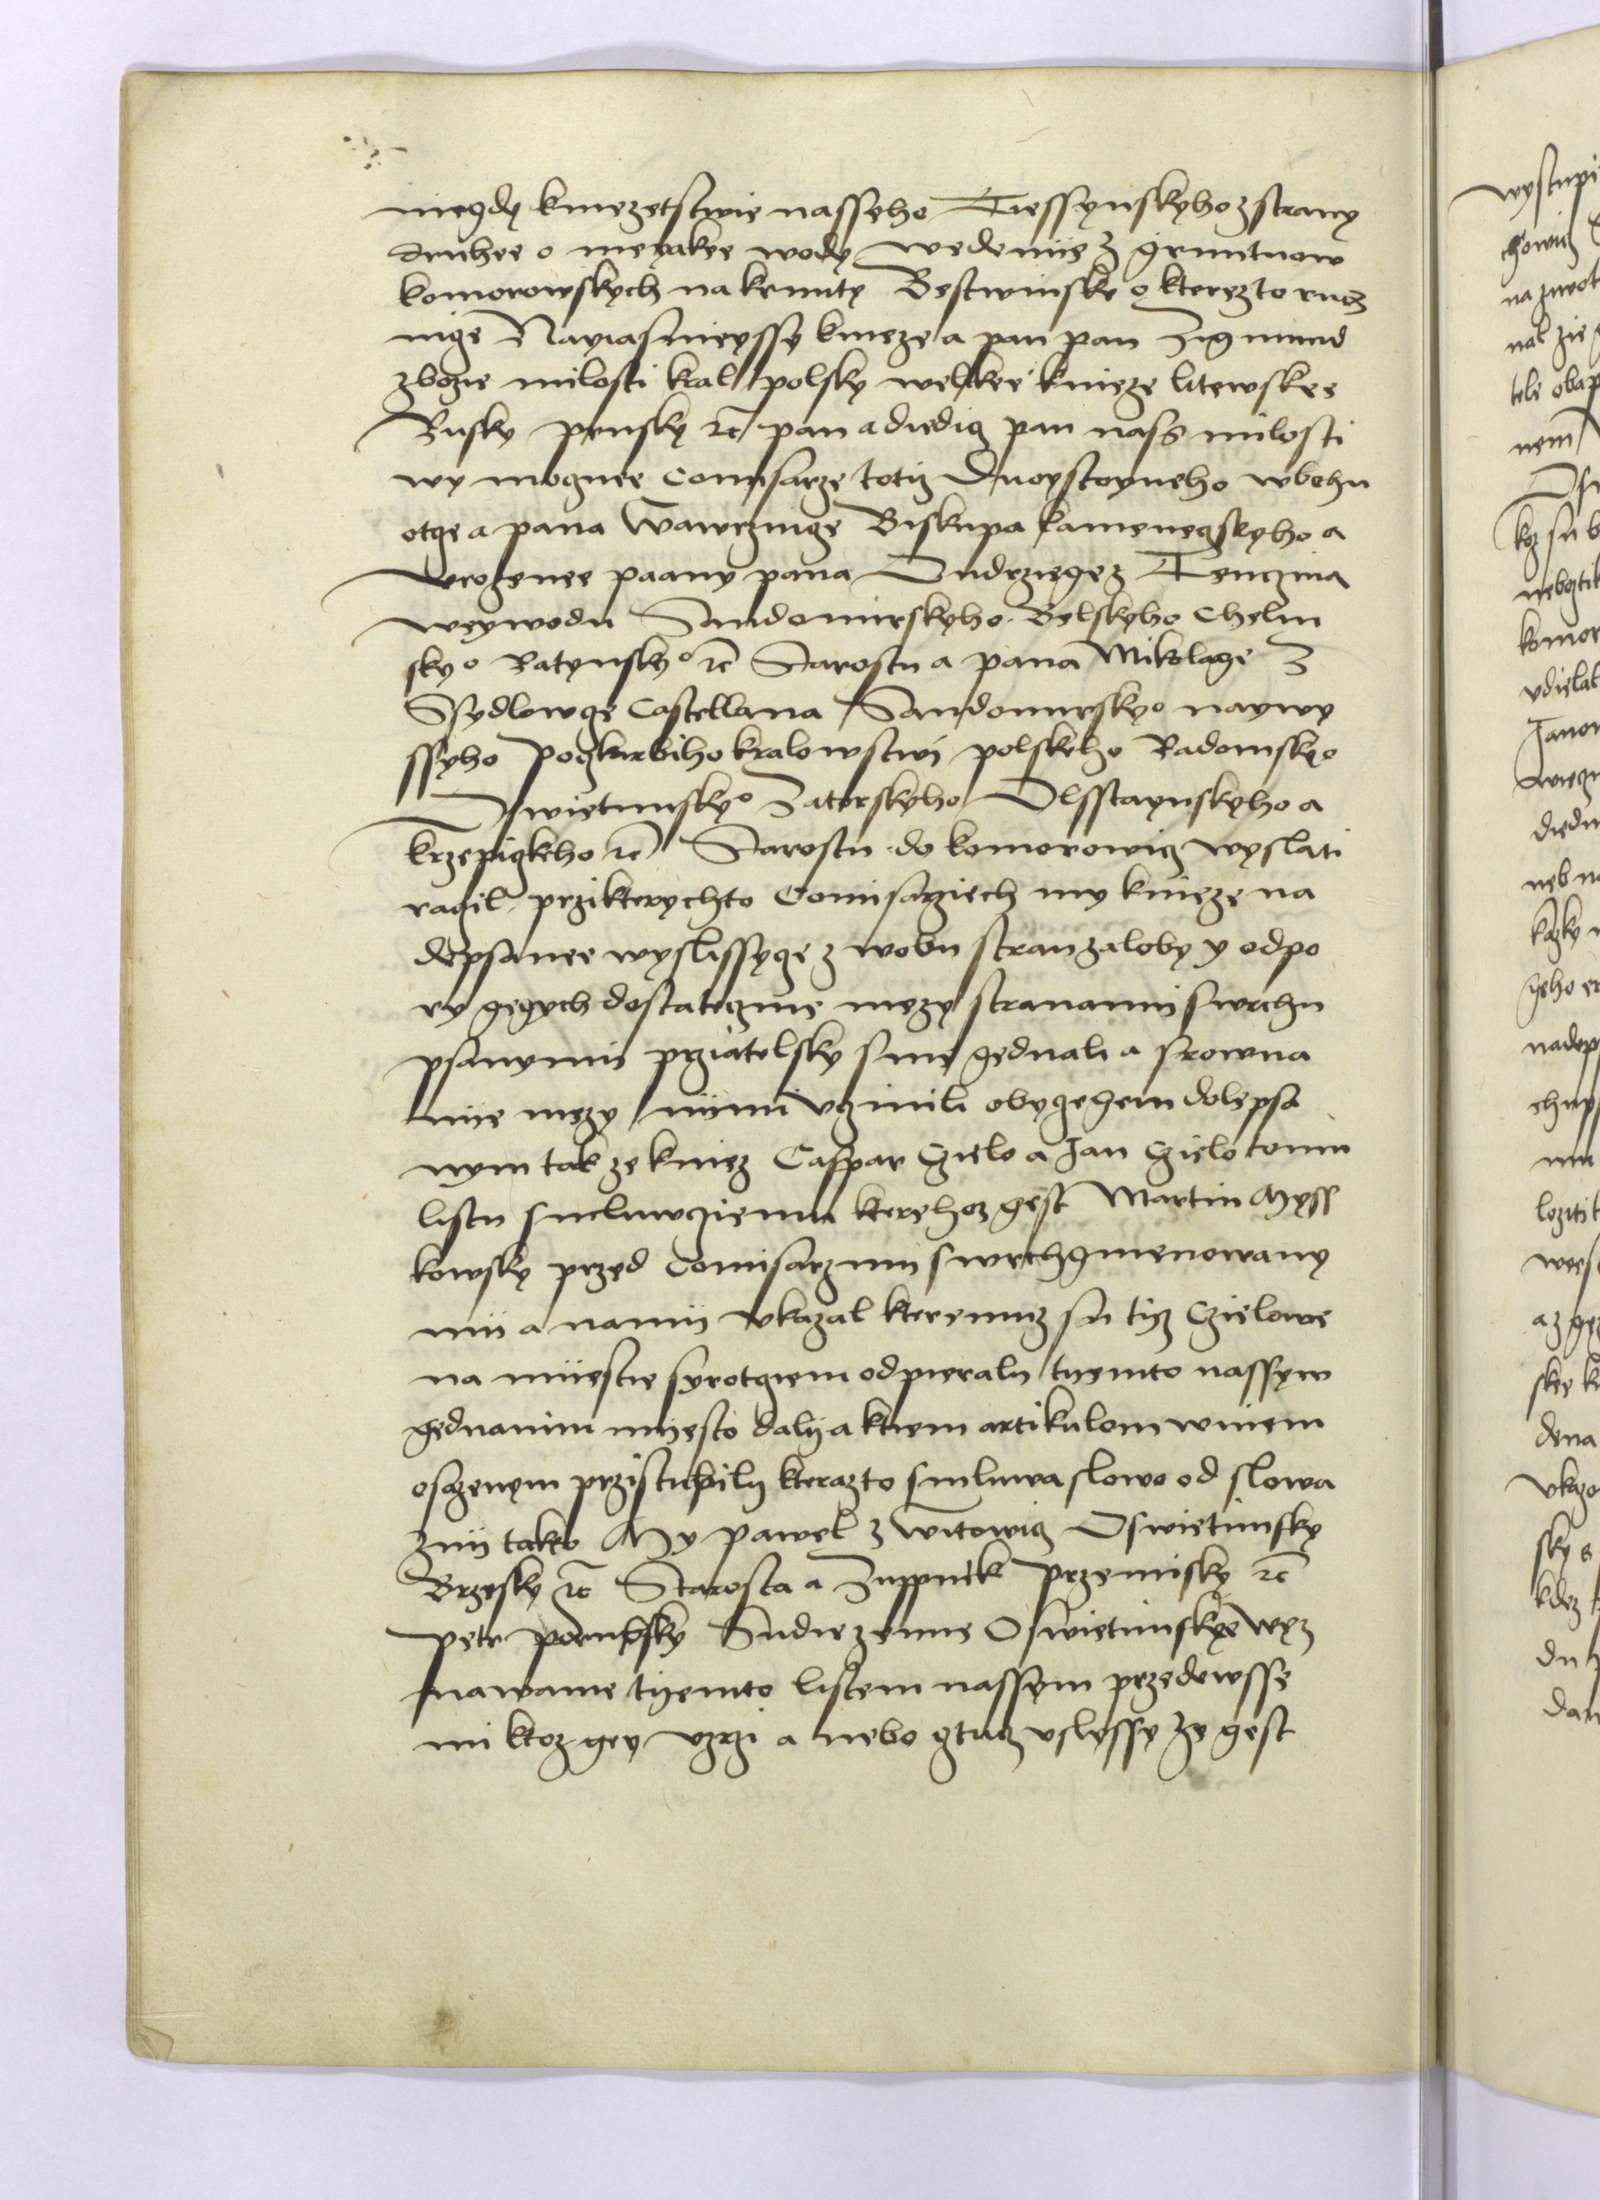 niegdy kniezetstwie nasseho Tiessynskyho z strany
druhee o nieyakee wody wedenie z gruntuow
komorowskych na krunty Bestwinske o kterezto ruoz
nige Nayiasnieyssy knieze a pan pan Zigmund
z bozie milosti kral polsky welikee knieze litewskee
Rusky prusky ꝛc pan a diedig pan nass milosti
wy mognee Comisarze totiz Duoystoyneho w bohu
otge a pana Wawrzinge Biskupa kamenegskyho a
Urozenee paany pana Ondrzege z Tenczina
weywodu Sandomirskyho Belskyho Chelm
skyo Ratynskyo ꝛc Starostu a pana Mikolage z
Ssydlowge Castellana Sandomirskyo naywy
ssyho Pogkarbiho kralowstwi polskeho Radomskyo
Oswietimskyo Zatorskyho Olsstaynskyho a
krzepigkeho ꝛc Starostu do komorowiz wyslati
ragil przikterychto Comisarziech my knieze na
depsanee wyslissyge z wobu stran zaloby y odpo
ry gegych dostateczne mezy stranami swrchu
psanymi prziatelsky sme gednali a srowna
nie mezy nimi uczinili obygegem dolepsa
nym tak ze kniez Caspar Czielo a Jan Czielo tomu
listu smluwniemu kterehoz gest Martin Myss
kowsky przed Comisarzmi swrchgmenowany
mi a nami ukazal kteremuz su tiz Czielowe
na miestie syrotgiem odpierali tiemto nassym
gednanim miesto daly a ktiem artikulom wniem
osazenym przistupily kterazto smluwa slowo od slowa
zni tako My Pawel z Witowiz Oswietimsky
Brzesky ꝛc Starosta a Zuppnik Przemisky ꝛc
Petr Porubsky Sudie zemie Oswietimskee wyz
nawame tiemto listem nassym przedewsse
mi ktoz gey uzrzi a nebo gtucz uslyssy ze gest